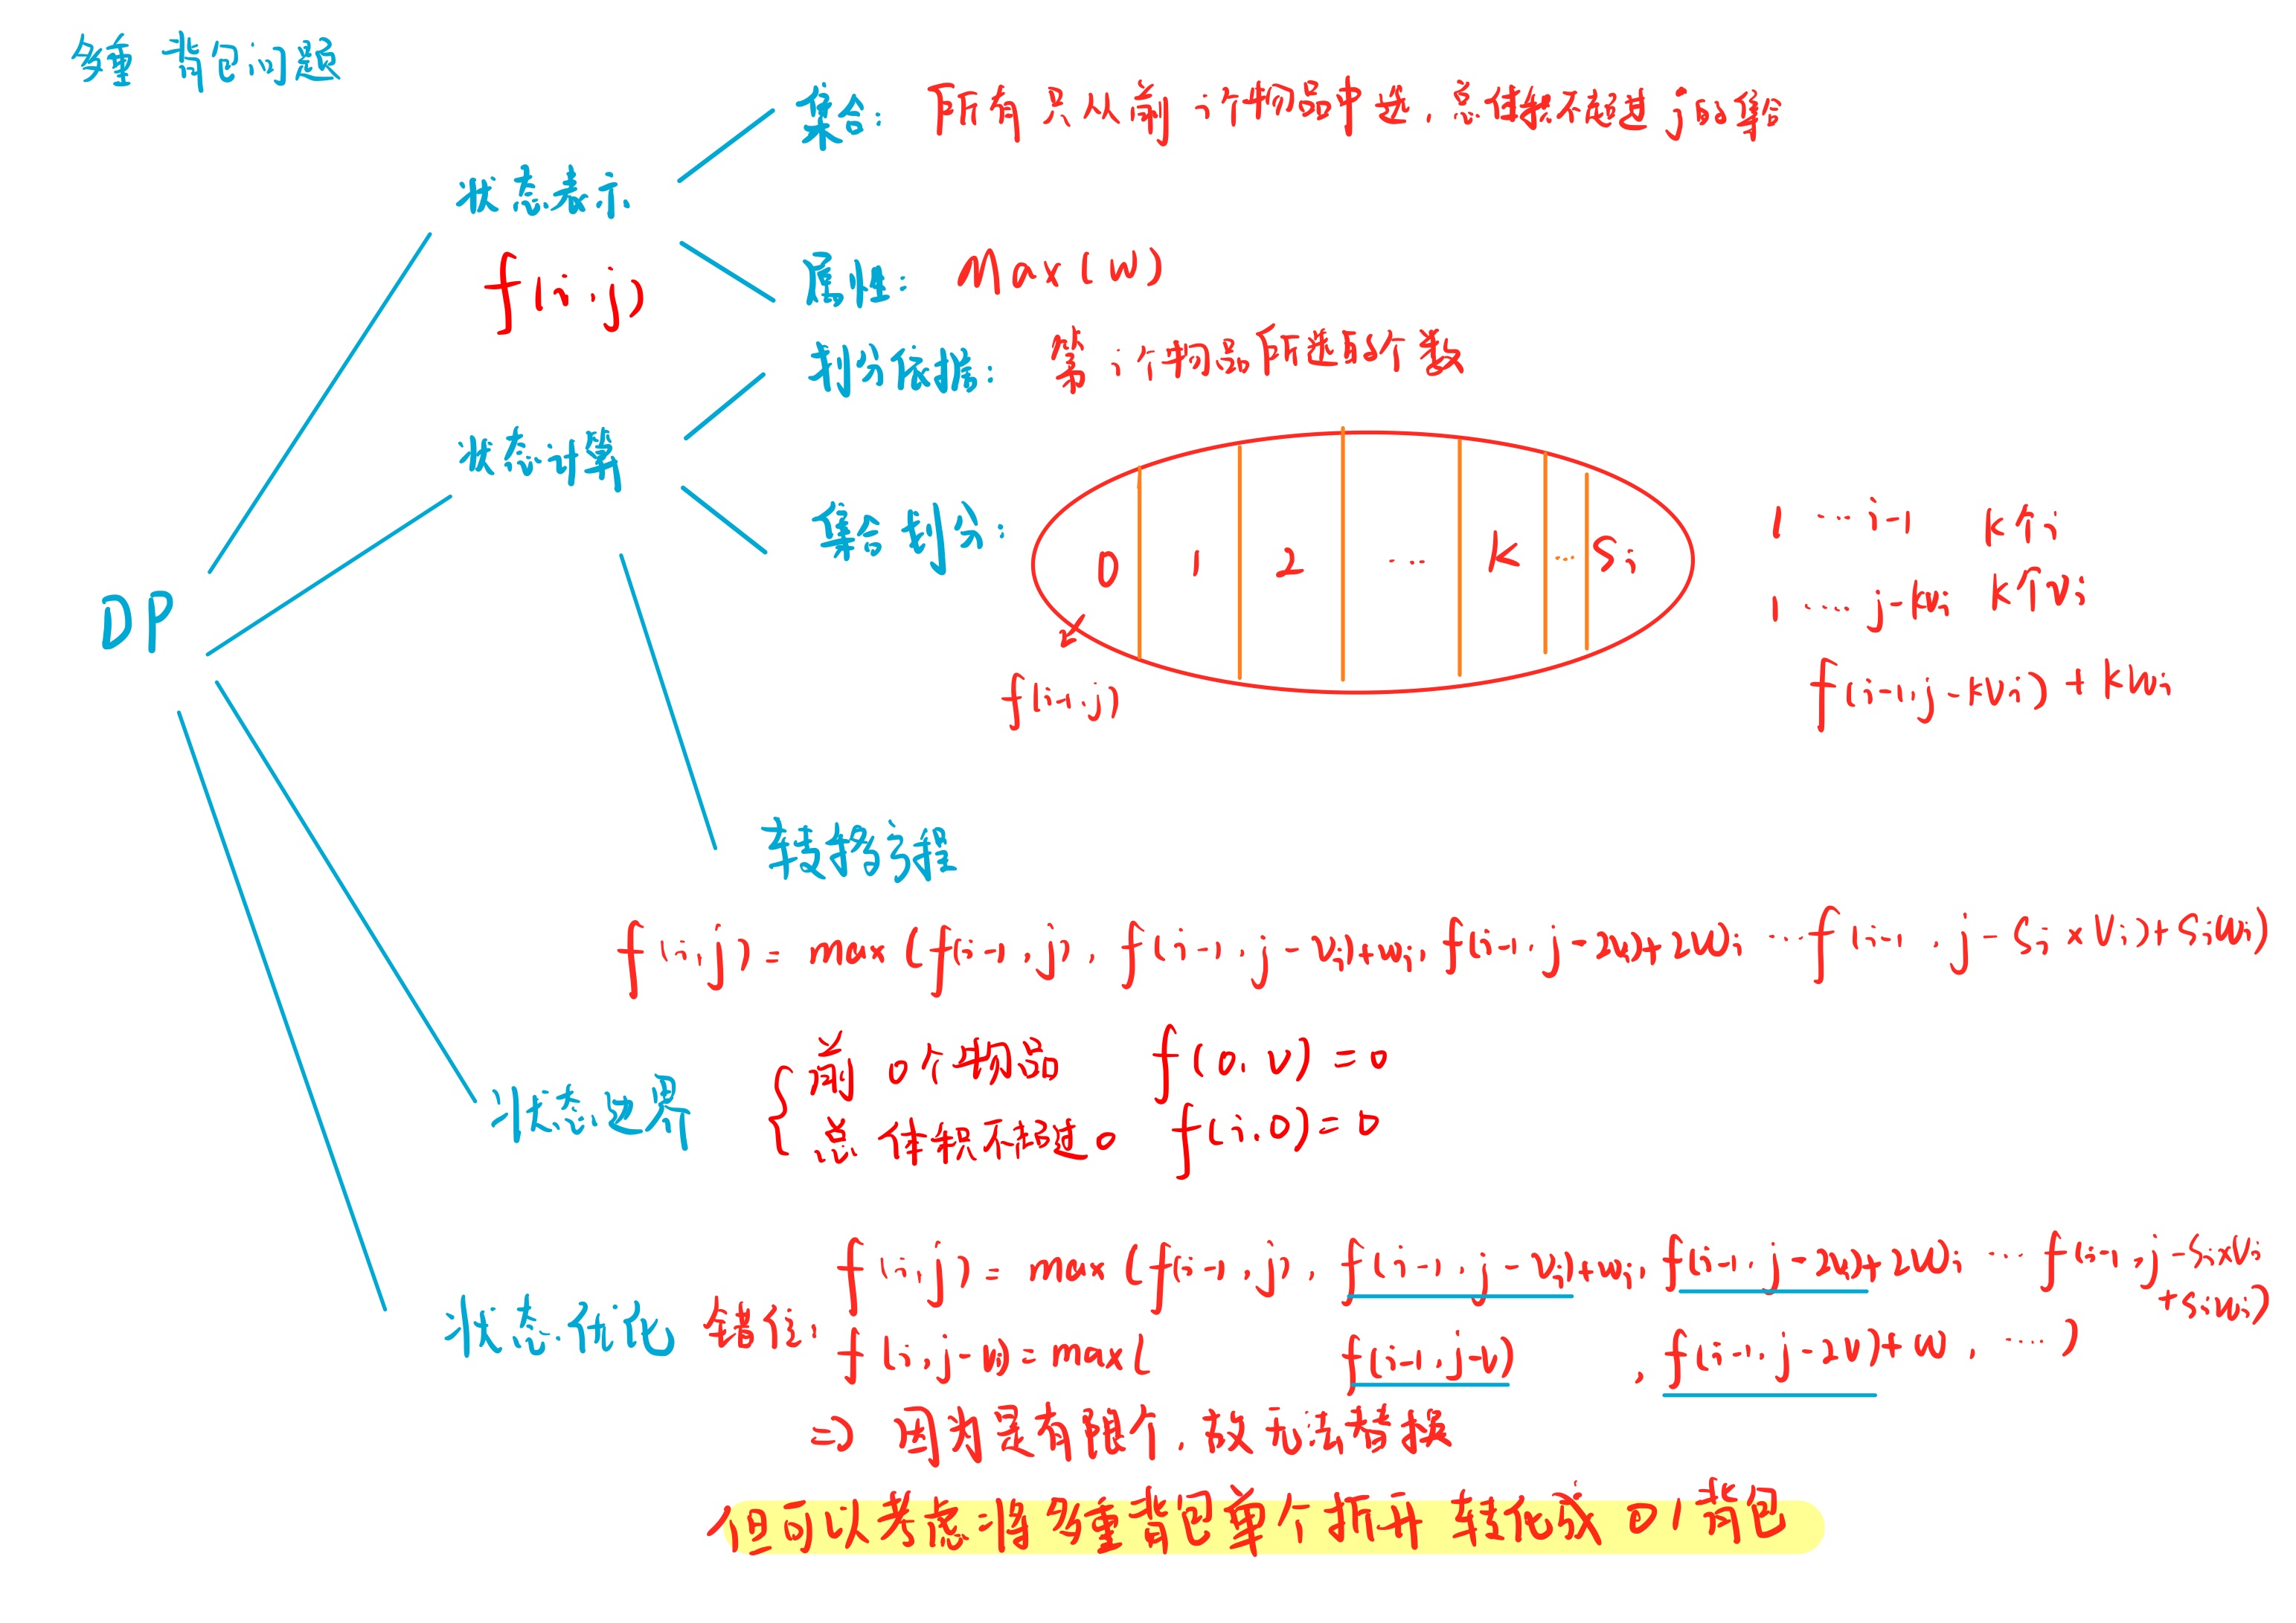 多重背包问题
集合: 所有只从前i个物品中选, 总体积不超过j的集合
状态表示
f(i,j)
属性: Max(w)
划分依据: 第i个物品所选的个数
状态计算
集合划分: 0 1 2 … k … Si
1 … i-1 k个i
1 …. j-kvi k个vi
f(i-1,j)
f(i-1,j-kvi)+kwi
DP
转移方程
f(i,j)=max(f(i-1,j), f(i-1,j-vi)+wi, f(i-1,j-2vi)+2wi …f(i-1,j-Si×Vi)+Siwi)
状态边界
前0个物品 f(0,v)=0
总体积不超过0 f(i,0)=0
状态优化 错位:
f(i,j)=max(f(i-1,j), f(i-1,j-vi)+wi, f(i-1,j-2vi)+2wi … f(i-1,j-Si×Vi
+Siwi)
f(i,j-vi)=max( f(i-1,j-v) , f(i-1,j-2v)+w, …)
⇒ 因为是有限个, 故无法替换
但可以考虑将多重背包单个拆开 转化成01背包